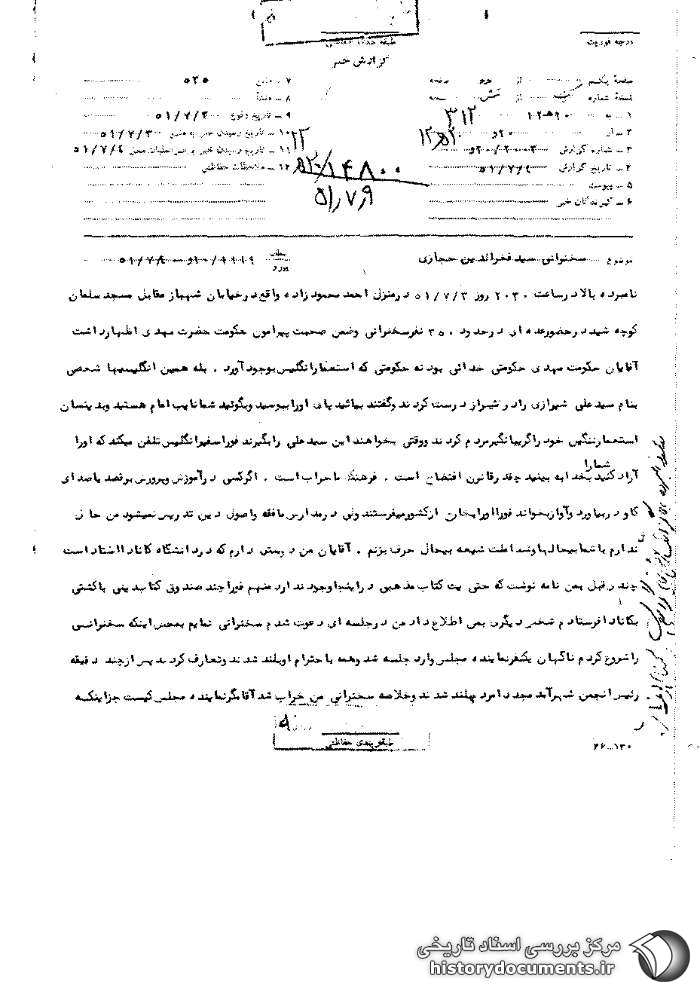 درجه فوریت
طبقه
گزارش خبر
صفحه یکم از صفحه
نسخه شماره از نسخه
۱ ـ به
۲ ـ از
۳ ـ شماره گزارش
۴ ـ تاریخ گزارش ۵۱/۷/۴
۵ ـ پیوست
۶ ـ گیرندگان خبر
۳۱۲
۷ ـ منبع ۵۲۵
۸ ـ منشأ
۹ ـ تاریخ وقوع ۵۱/۷/۳
۱۰ ـ تاریخ رسیدن خبر به منبع ۵۱/۷/۳
۱۱ ـ تاریخ رسیدن خبر به رهبر عملیات محل ۵۱/۷/۴
۱۲ ـ ملاحظات حفاظتی
۱۴۸۰۰
۵۱/۷/۹
موضوع سخنرانی سید فخرالدین حجازی
عطف پیرو
نامبرده بالا در ساعت ۲۰۳۰ روز ۵۱/۷/۳ در منزل احمد محمودزاده واقع در خیابان شهباز مقابل مسجد سلمان
کوچه شید در حضور عده ای در حدود ۳۵۰ نفر سخنرانی و ضمن صحبت پیرامون حکومت حضرت مهدی اظهار داشت
آقایان حکومت مهدی حکومتی خدائی بود نه حکومتی که استعمار انگلیس بوجود آورد . بله همین انگلیسیها شخصی
بنام سید علی شیرازی را در شیراز درست کردند و گفتند بیائید پای او را ببوسید و بگوئید شما نایب امام هستید و بدینسان
استعمار ننگین خود را گریبانگیر مردم کردند و وقتی میخواهند این سید علی را بگیرند فورا سفیر انگلیس تلفن میکند که او را
آزاد کنید بخدا به بینید چقدر قانون افتضاح است . فرهنگ شما را خراب است . اگر کسی در آموزش و پرورش برقصد یا صدای
گاو در بیاورد و آواز بخواند فورا او را بخارج از کشور میفرستند ولی در مدارس ما فقه و اصول دین تدریس نمیشود من حال
ندارم با شما بیحالها و شما ملت شیعه بیحال حرف بزنم . آقایان من دوستی دارم که در دانشگاه کانادا استاد است
چندی قبل بمن نامه نوشت که حتی یک کتاب مذهبی در اینجا وجود ندارد منهم فورا چند صندوق کتاب دینی با کشتی
بکانادا فرستادم شخص دیگری بمن اطلاع داد من در جلسه ای دعوت شدم سخنرانی نمایم بمحض اینکه سخنرانی
را شروع کردم ناگهان یکنفر نماینده مجلس وارد جلسه شد و همه با احترام او بلند شدند و تعارف کردند پس از چند دقیقه
رئیس انجمن شهر آمد مجددا مردم بلند شدند و خلاصه سخنرانی من خراب شد آقا مگر نماینده مجلس کیست جز اینکه
طبقه‌بندی حفاظتی
۲۶-۱۳۰
مرکز بررسی اسناد تاریخی
historydocuments.ir